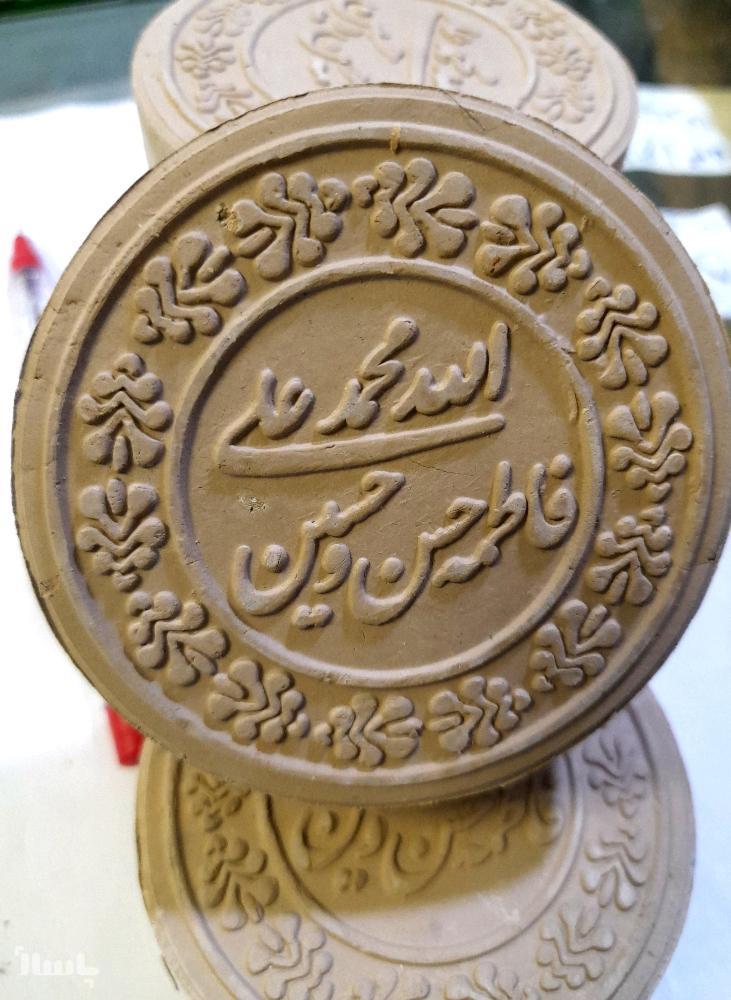 الله محمد علی
فاطمه حسن و حسین
باسلام